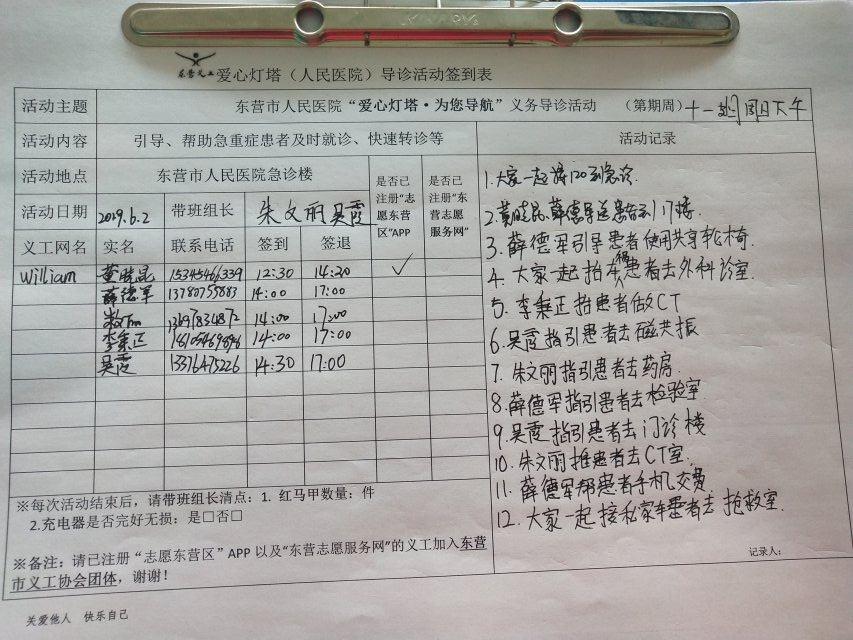 东营义工 爱心灯塔（人民医院）导诊活动签到表
活动主题 东营市人民医院“爱心灯塔·为您导航”义务导诊活动 （第期周）十一期周日下午
活动内容 引导、帮助急重症患者及时就诊、快速转诊等 活动记录
活动地点 东营市人民医院急诊楼 是否已注册“志愿东营区”APP 是否已注册“东营志愿服务网”
活动日期 2019.6.2 带班组长 朱文丽 吴霞
义工网名 实名 联系电话 签到 签退
William 董晓昆 15345466339 12:30 14:20 ✓
薛德军 13780755883 14:00 17:00
14:00 17:00
李秉正 14:00 17:00
吴霞 13376475226 14:30 17:00
1.大家一起接120到急诊.
2.董晓昆、薛德军送患者到门诊楼.
3.薛德军引导患者使用共享轮椅.
4.大家一起抬车得患者去外科诊室.
5.李秉正指患者做CT
6.吴霞指引患者去磁共振
7.朱文丽指引患者去药房.
8.薛德军指引患者去检验室.
9.吴霞指引患者去门诊楼
10.朱文丽推患者去CT室.
11.薛德军帮患者手机交费.
12.大家一起接私家车患者去抢救室.
※每次活动结束后，请带班组长清点：1. 红马甲数量：件
2.充电器是否完好无损：是□否□
※备注：请已注册“志愿东营区”APP以及“东营志愿服务网”的义工加入东营
市义工协会团体，谢谢！
记录人：
关爱他人 快乐自己